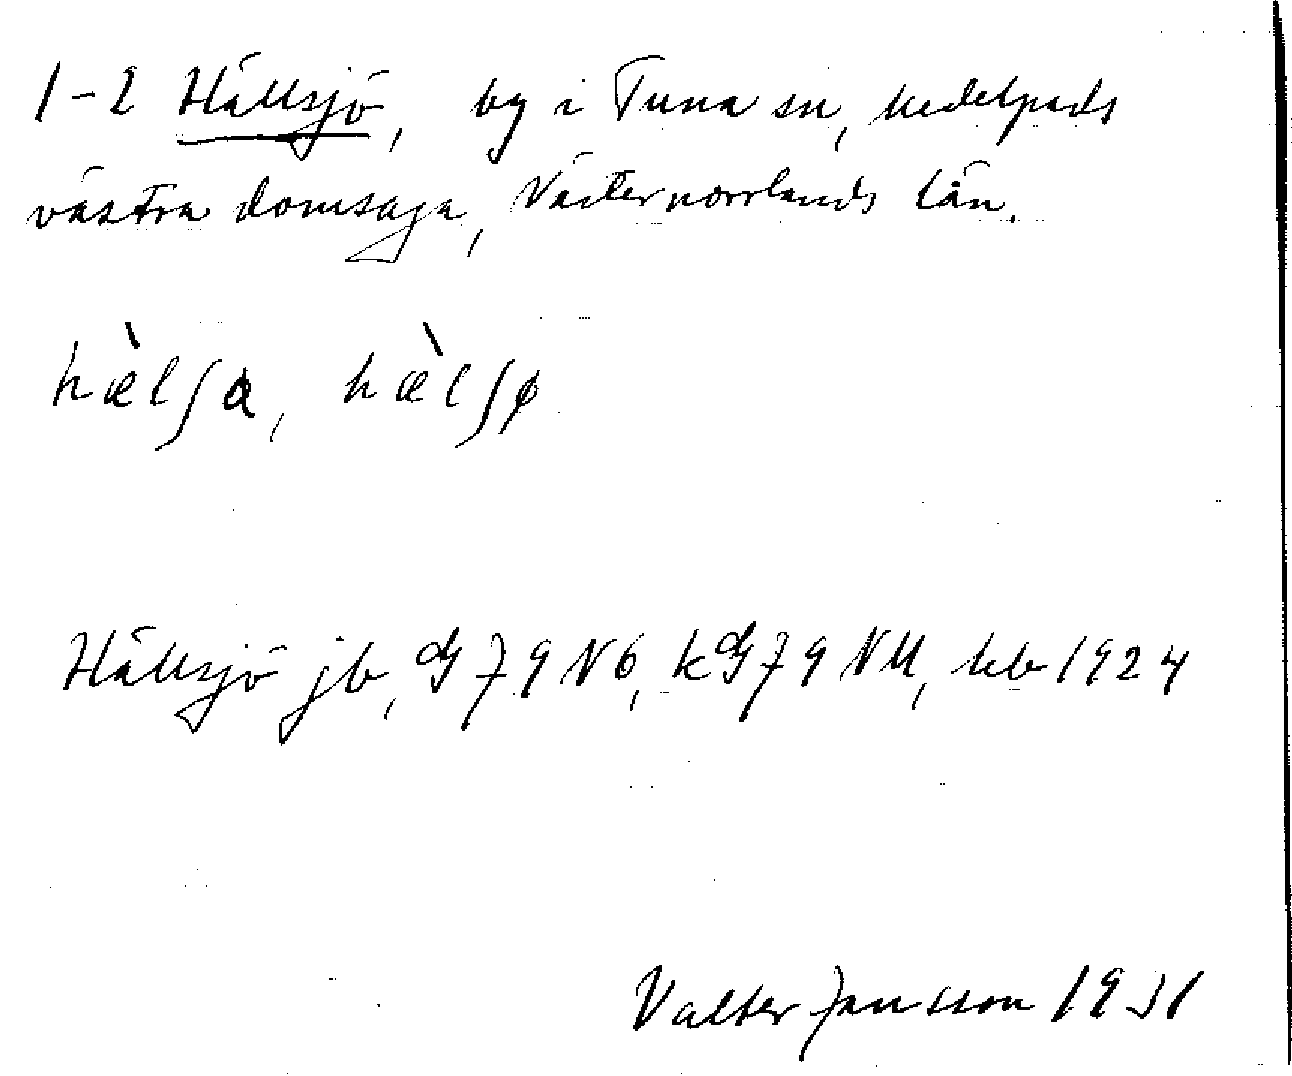 1-2 Hällsjö, by i Tuna sn, Medelpads
västra domsaga, Västernorrlands län.
hæ̀lʃa, hæ̀lʃø
Hällsjö jb, G 79 NÖ, kG 79 NU, kb 1924
Valter Jansson 1931